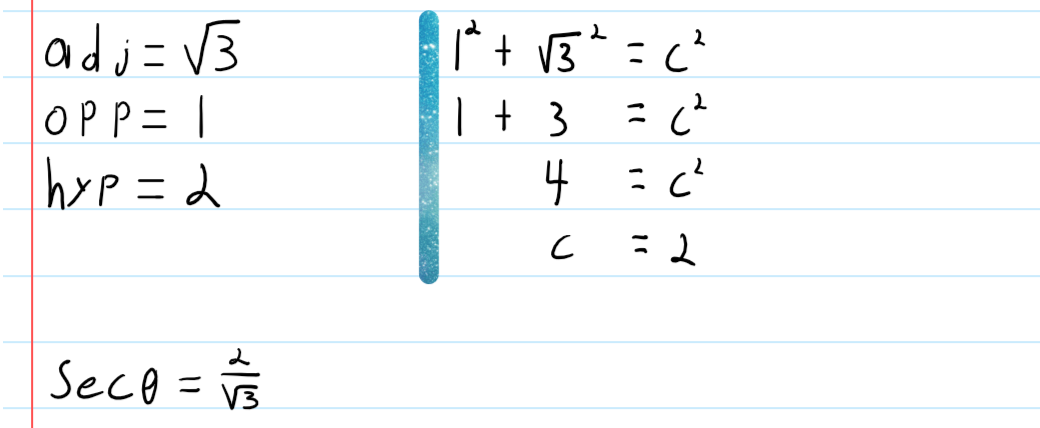 adj = √3
opp = 1
hyp = 2
1² + √3² = c²
1 + 3 = c²
4 = c²
c = 2
Sec θ = 2/√3